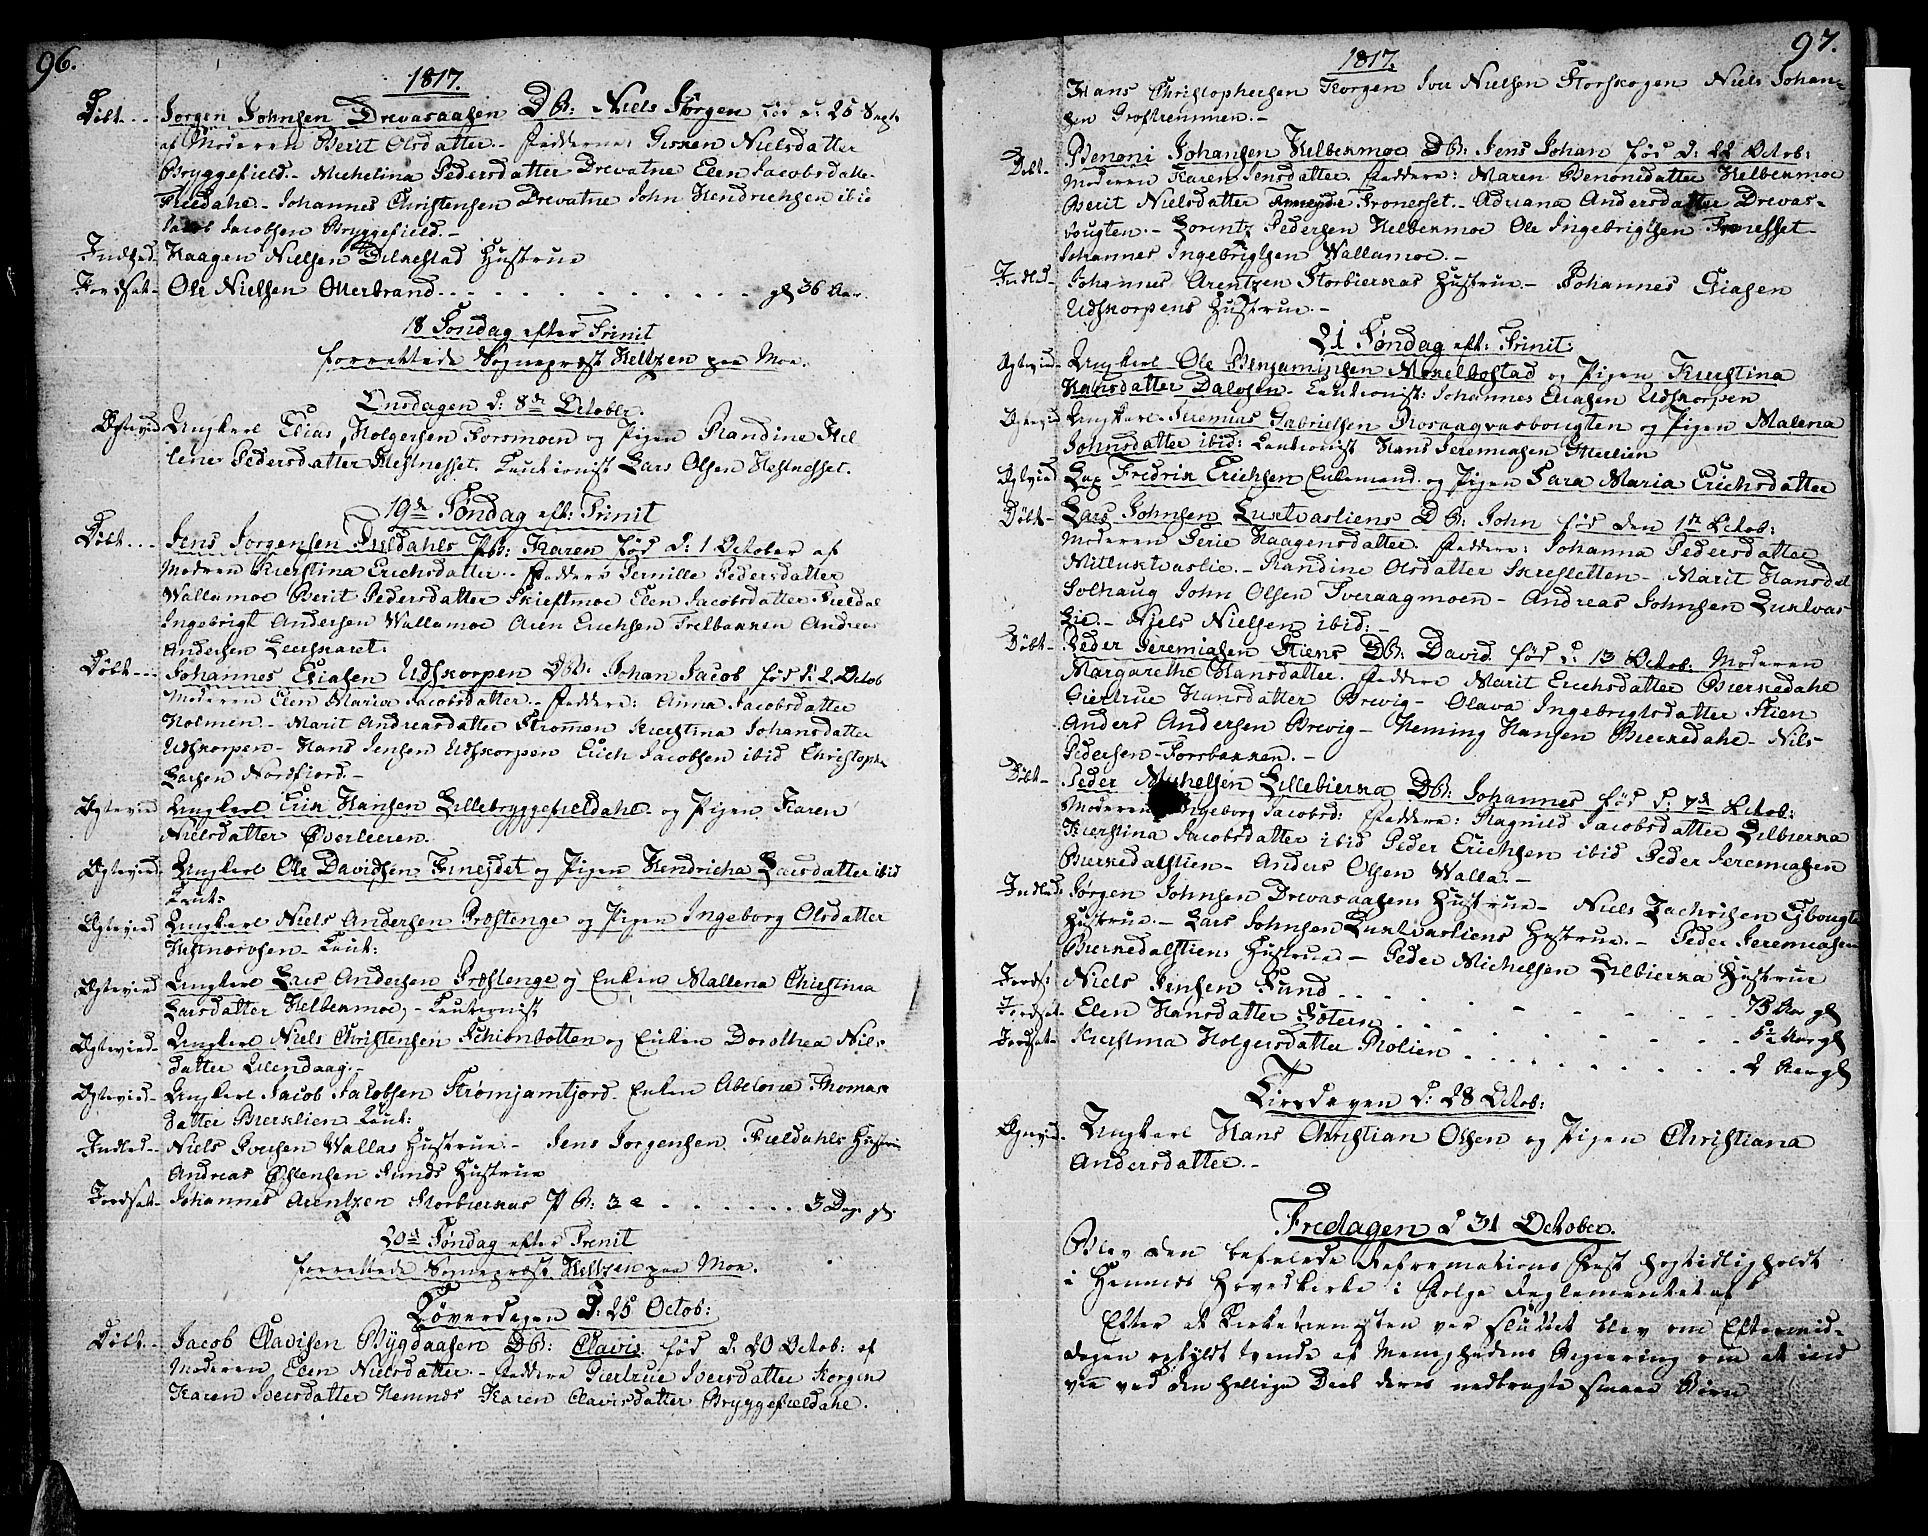 96.
1817.
Döbt... Jørgen Johnsen Drevasaasen D B: Niels Jørgen fød d: 25 Sept.
af Moderen Berit Olsdatter. Fadderne: Gurren Nielsdatter
Bryggefield. Michelina Pedersdatter Drevatne Elen Jacobsdatter
Fieldahl. Johannes Christensen Drevatne John Hendrichsen ibid
Jacob Jacobsen Bryggefield.
Indled. Haagen Nielsen Hustrue
Jordsat. Ole Nielsen Otterbrand ... gl 36 Aar.
18 Søndag efter Trinit
forrettede Sognepræst Heltzen paa Moe.
Onsdagen d: 8de October.
Ægtevied Ungkarl Elias Holgersen Forsmoen og Pigen Randine Hel
lene Pedersdatter Hestnesset. Cautionist Lars Olsen Hestnesset.
19de Søndag eft: Trinit
Döbt... Jens Jorgensen Fieldahls PB: Karen fød d: 1 October af
Modren Kierstina Erichsdatter. Faddere Pernille Pedersdatter
Wallamoe Berit Pedersdatter Skieftmoe Elen Jacobsdatter Fieldal
Ingebrigt Andersen Wallamoe Aren Erichsen Trelbakken Andreas
Andersen Leerskaret.
Döbt... Johannes Eliasen Udskorpen DB: Johan Jacob fød d: 2 Octob
Moderen Elen Maria Jacobsdatter. Faddere: Anna Jacobsdatter
Holmen. Marit Andreasdatter Strømen Kierstina Johansdatter
Udskorpen. Hans Jensen Udskorpen Erich Jacobsen ibid Christoph
Larsen Nordfiord.
Ægtevied Ungkarl Erik Hansen Lillebryggefieldahl og Pigen Karen
Nielsdatter Øverleeren.
Ægtevied Ungkarl Ole Davidsen Finejdet og Pigen Hendricha Larsdatter ibid
Caut:
Ægtevied Ungkarl Niels Andersen Præstenge og Pigen Ingeborg Olsdatter
Caut:
Ægtevied Ungkarl Lars Andersen Præstenge og Enken Mallena Christina
Larsdatter Helbekmoe. Cautionist
Ægtevied Ungkarl Niels Christensen og Enken Dorothea Niels
datter
Ægtevied Ungkarl Jacob Jacobsen Strømjamtjord Enken Abelone Thomas
datter Bierklien Caut:
Indled Niels Povelsen Wallas Hustrue. Jens Jorgensen Fieldahls Hustrue
Andreas Østensen Funds Hustrue
Jordsat. Johannes Arentzen Storbierkas PB: ... 3 Dage gl.
20de Søndag efter Trenit
forrettede Sognepræst Heltzen paa Moe.
Löverdagen D: 25 Octob:
Döbt... Jacob Clavisen Bygdaasen DB: Clavis fød d. 20 Octob: af
Moderen Elen Nielsdatter. Faddere Giertrue Iversdatter Korgen
Karen Iversdatter Hemnes Karen Clavisdatter Bryggefieldahl.
97.
1817.
Hans Christophersen Korgen Iver Nielsen Storskogen Niels Johan-
sen Groftremmen.
Döbt. Benoni Johansen Helbekmoe DB: Jens Johan fød d: 22 Octob:
Moderen Karen Jensdatter. Faddere: Maren Benonisdatter Helbekmoe
Berit Nielsdatter Fonesset. Adriana Andersdatter Drevas-
bougten. Lorentz Pedersen Helbekmoe Ole Ingebrigtsen Fonesset
Johannes Ingebrigtsen Wallamoe.
Indled Johannes Arentzen Storbierkas Hustrue. Johannes Eliasen
Udskorpens Hustrue.
21 Søndag eft: Trinit.
Ægtevied Ungkarl Ole Benjaminsen Mekelbostad og Pigen Kierstina
Hansdatter Dalosen. Cautionist: Johannes Eliasen Udskorpen
Ægtevied Ungkarl Jeremias Gabrielsen Rosaagvasbougten og Pigen Malena
Johnsdatter ibid: Cautionist Hans Jeremiasen
Ægtevied Lap Fredrik Erichsen Enkemand og Pigen Sara Maria Erichsdatter
Döbt Lars Johnsen Luktvasliens DB: John fød den 1ste Octob:
Moderen Serie Haagensdatter. Faddere: Johanna Pedersdatter
Mitluktvaslie. Randine Olsdatter Skresletten. Marit Hansdat
Solhaug John Olsen Tveraagmoen. Andreas Johnsen Luktvas
lie. Niels Nielsen ibid:
Döbt Peder Jeremiasen Stiens DB: David fød d: 13 Octob: Moderen
Margarethe Hansdatter. Faddere Marit Erichsdatter Bierkedahl
Giertrue Hansdatter Brevig. Olava Ingebrigtsdatter Stien
Anders Andersen Brevig. Heming Hansen Bierkedahl. Nils
Pedersen Forrbakken.
Döbt Peder Mickelsen Lillebierka DB: Johannes fød d. 7de Octob:
Moderen Ingeborg Jacobsd: Faddere: Ragnild Jacobsdatter Lilbierka
Kierstina Jacobsdatter ibid Peder Erichsen ibid Peder Jeremiasen
Bierkedalstien. Anders Olsen Walla.
Indled: Jørgen Johnsen Drevasaasens Hustrue. Niels Zachrisen
Hustrue. Lars Johnsen Luktvasliens Hustrue. Peder Jeremiasen
Bierkedalstiens Hustrue. Peder Michelsen Lilbierka Hustrue
Jords: Niels Jensen Fund ... 73 Aar gl
Jordsat Elen Hansdatter ... 52 Aar gl
Jordsat Kierstina Holgersdatter ... 2 Aar gl
Tirsdagen d: 28 Octob:
Ægtevied. Ungkarl Hans Christian Olsen og Pigen Christiana
Andersdatter.
Fredagen d 31 October.
Blev den befalede Reformations Fest høytidligholdt
i Hemnes Hovedkirke i Følge Reglementet af
Efter at Kirketienesten var sluttet blev om Eftermid-
dagen opfyldt tvende af Menighedens Begiering om at ind
vie ved den hellige Daab deres nedbragte smaae Børn